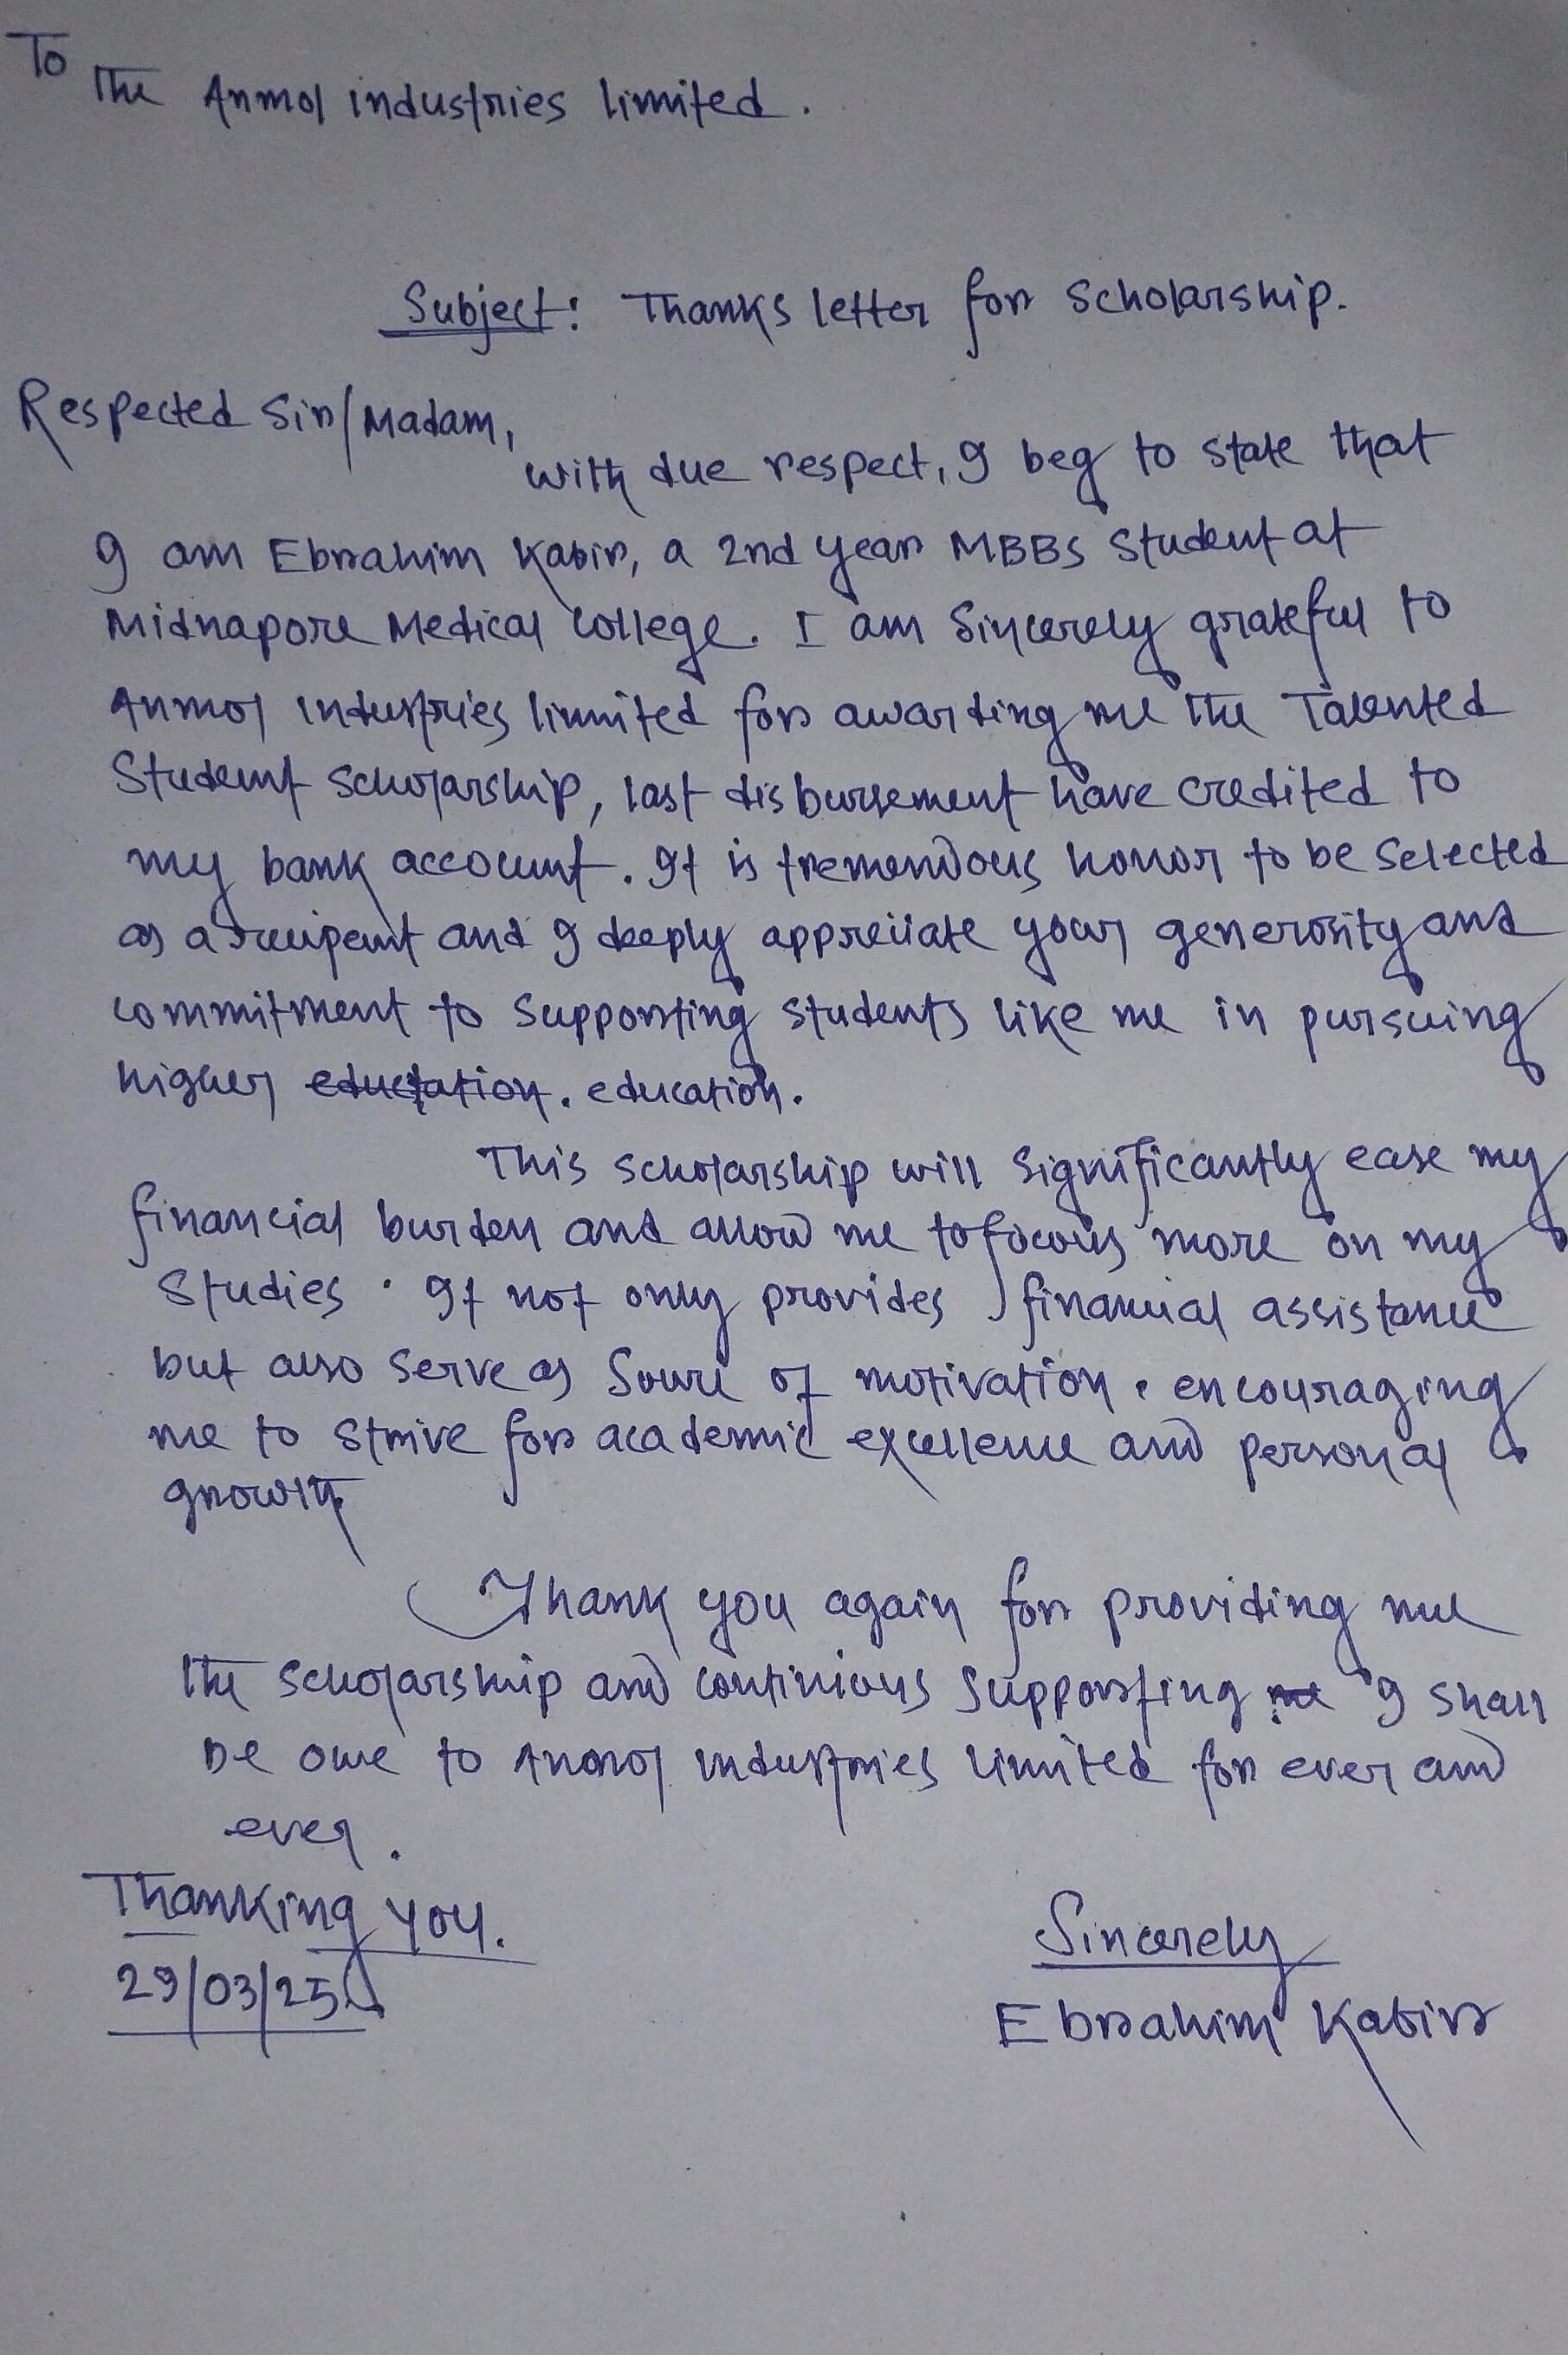 To
The Anmol industries limited.
Subject: Thanks letter for Scholarship.
Respected Sir/Madam,
with due respect, I beg to state that
I am Ebrahim Kabir, a 2nd year MBBS Student at
Midnapore Medical College. I am Sincerely grateful to
Anmol Industries limited for awarding me the Talented
Student Scholarship, last disbursement have credited to
my bank account. It is tremendous honor to be Selected
as a recipent and I deeply appreciate your generosity and
commitment to Supporting Students like me in pursuing
higher education. education.
This Scholarship will Significantly ease my
financial burden and allow me to focous more on my
Studies. It not only provides financial assistance
but also Serve as Source of motivation. encouraging
me to Strive for academic excellence and personal
growth
Thank you again for providing me
the Scholarship and continious Supporting me I Shall
be owe to Anmol Industries limited for ever and
ever.
Thanking you.
29/03/25
Sincerely
Ebrahim Kabir